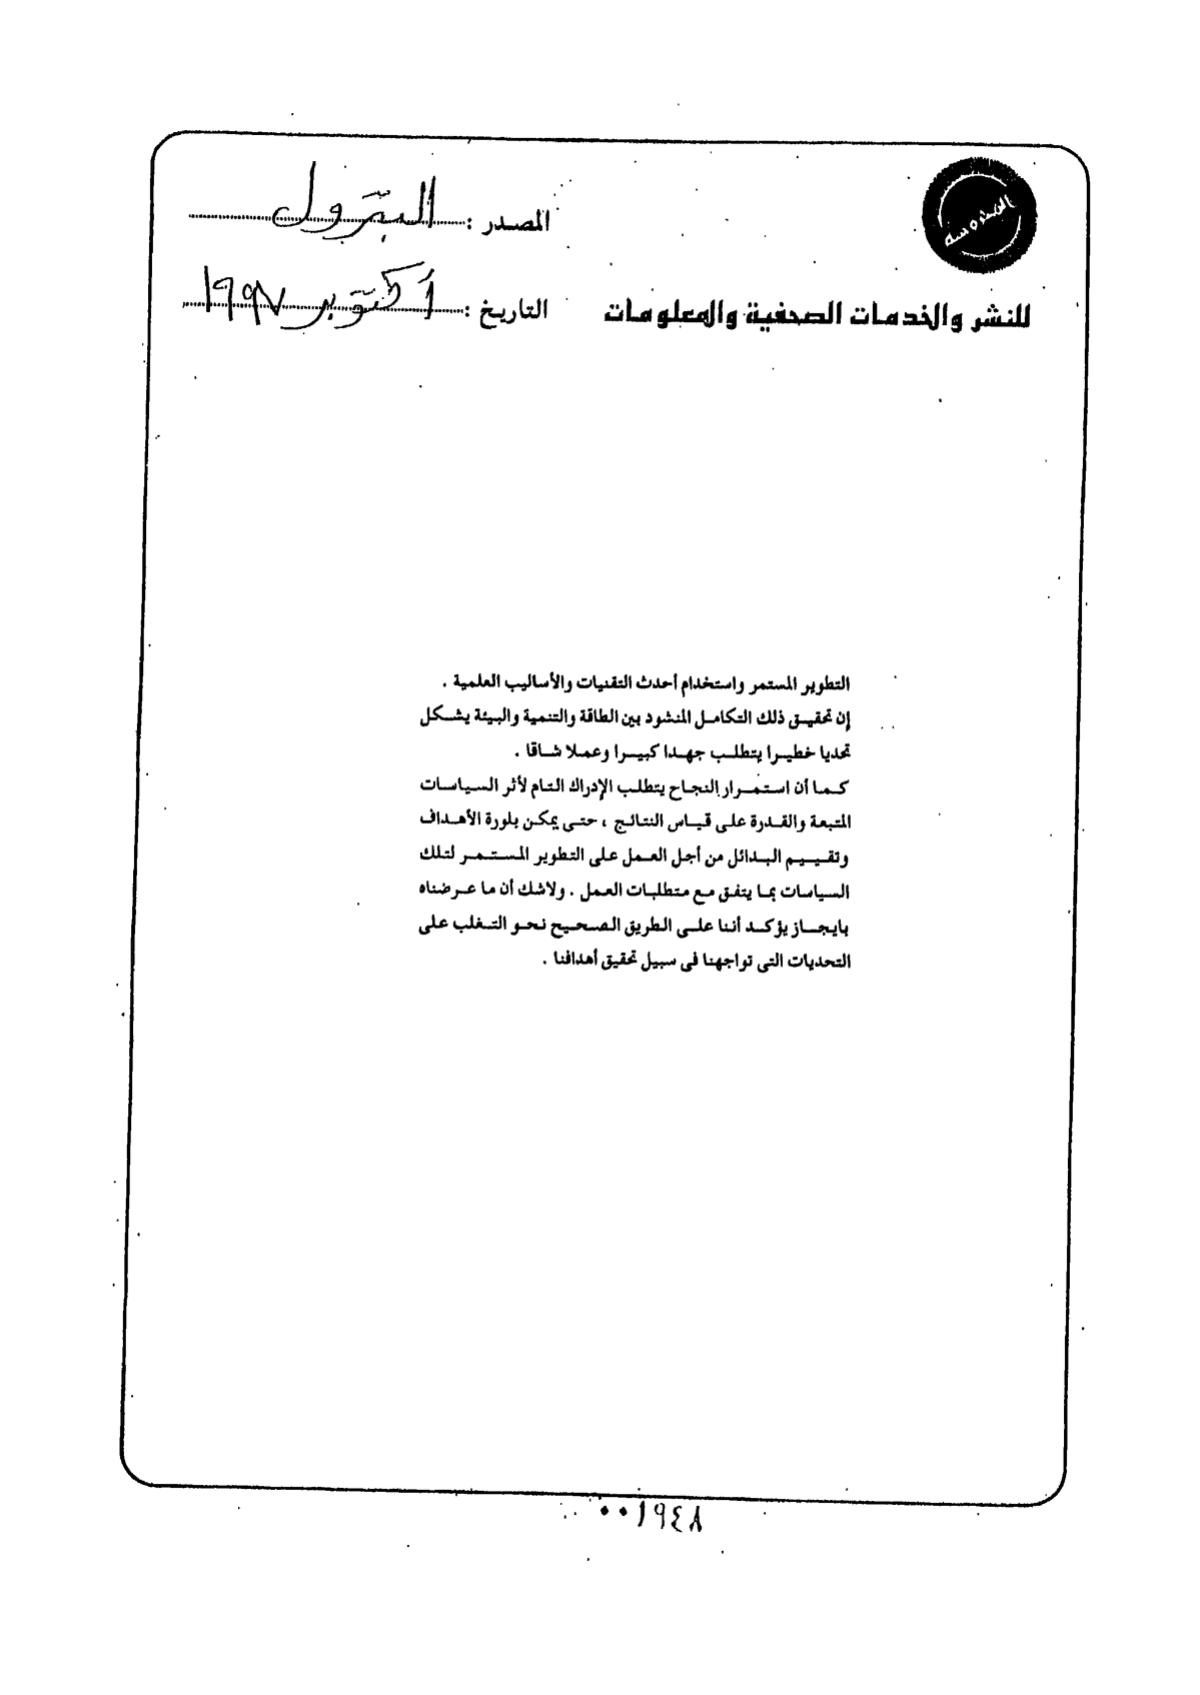 المصدر : البترول
للنشر والخدمات الصحفية والمعلومات
التاريخ : أكتوبر ١٩٩٧
التطوير المستمر واستخدام أحدث التقنيات والأساليب العلمية .
إن تحقيق ذلك التكامل المنشود بين الطاقة والتنمية والبيئة يشكل
تحديا خطيرا يتطلب جهدا كبيرا وعملا شاقا .
كما أن استمرار النجاح يتطلب الإدراك التام لأثر السياسات
المتبعة والقدرة على قياس النتائج ، حتى يمكن بلورة الأهداف
وتقييم البدائل من أجل العمل على التطوير المستمر لتلك
السياسات بما يتفق مع متطلبات العمل . ولاشك أن ما عرضناه
بايجاز يؤكد أننا على الطريق الصحيح نحو التغلب على
التحديات التى تواجهنا فى سبيل تحقيق أهدافنا .
٠٠١٩٤٨